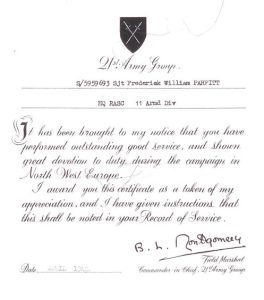 21st Army Group.
S/5959693 Sjt Frederick William PARFITT
HQ RASC 11 Armd Div
It has been brought to my notice that you have
performed outstanding good service, and shown
great devotion to duty, during the campaign in
North West Europe.
I award you this certificate as a token of my
appreciation, and I have given instructions that
this shall be noted in your Record of Service.
B. L. Montgomery
Field Marshal
Date
Commander in Chief, 21st Army Group